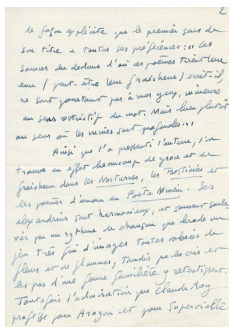 2
de façon explicite que le premier sens de
son titre a toutes ses préférences : « les
sources du dedans d'où ces poèmes tirent leur
eau (peut-être leur fraîcheur) écrit-il
ne sont pourtant pas à mes yeux, mineures
au sens restrictif du mot. Mais bien plutôt
au sens où les mines sont profondes. »
Ainsi que l'a pressenti l'auteur, l'on
trouve en effet beaucoup de grâce et de
fraîcheur dans les Nocturnes, les Bestiaires et
les poèmes d'amour du Poète Mineur. Ses
alexandrins sont harmonieux, et souvent
sur un rythme de chanson que brode un
jeu très fin d'images toutes
fleurs et de flammes, tandis que les cris et
les pas d'une faune familière y retentissent.
Toutefois l'admiration que Claude Roy
professe pour Aragon et pour Supervielle